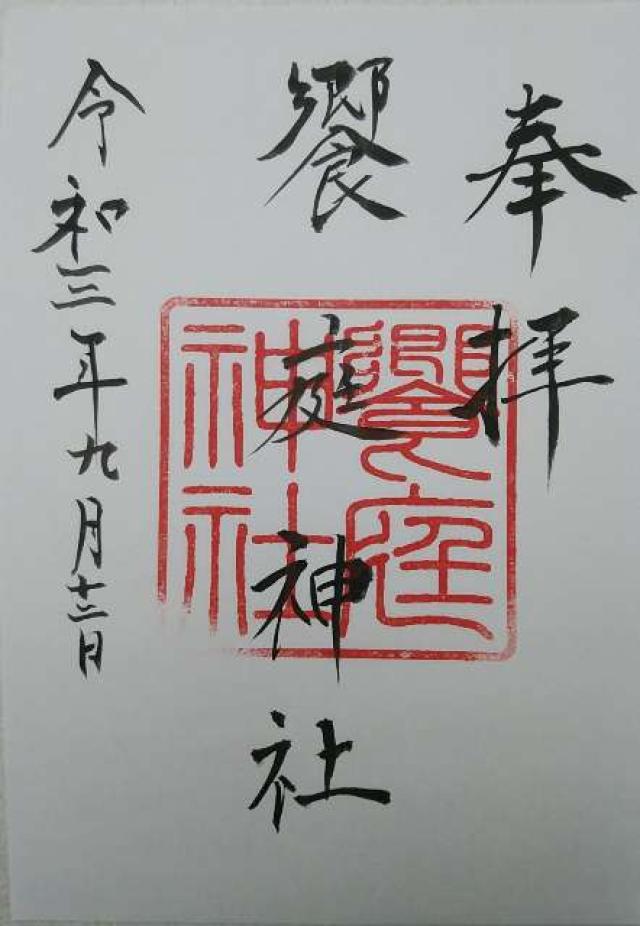 奉拝
饗庭神社
饗庭神社
令和三年九月十二日